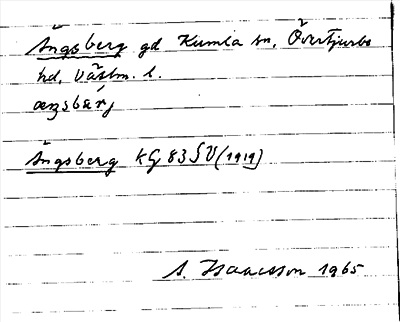 Ängsberg gd Kumla sn, Övertjurbo
hd, Västm. l.
æŋsbærj
Ängsberg KG 83 SV (1919)
A. Isaacsson 1965